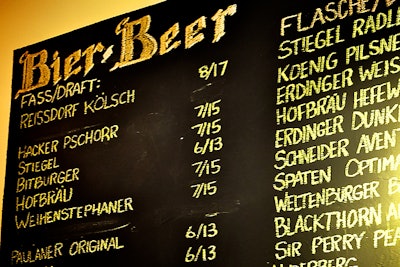 Bier-Beer
FASS/DRAFT:
REISSDORF KÖLSCH 8/17
HACKER PSCHORR 7/15
STIEGEL 7/15
BITBURGER 6/13
HOFBRÄU 7/15
WEIHENSTEPHANER 7/15
PAULANER ORIGINAL 6/13
6/13
FLASCHE/
STIEGEL RADLE
KOENIG PILSNE
ERDINGER WEIS
HOFBRÄU HEFEW
ERDINGER DUNK
SCHNEIDER AVENT
SPATEN OPTIMA
WELTENBURGER B
BLACKTHORN A
SIR PERRY PEA